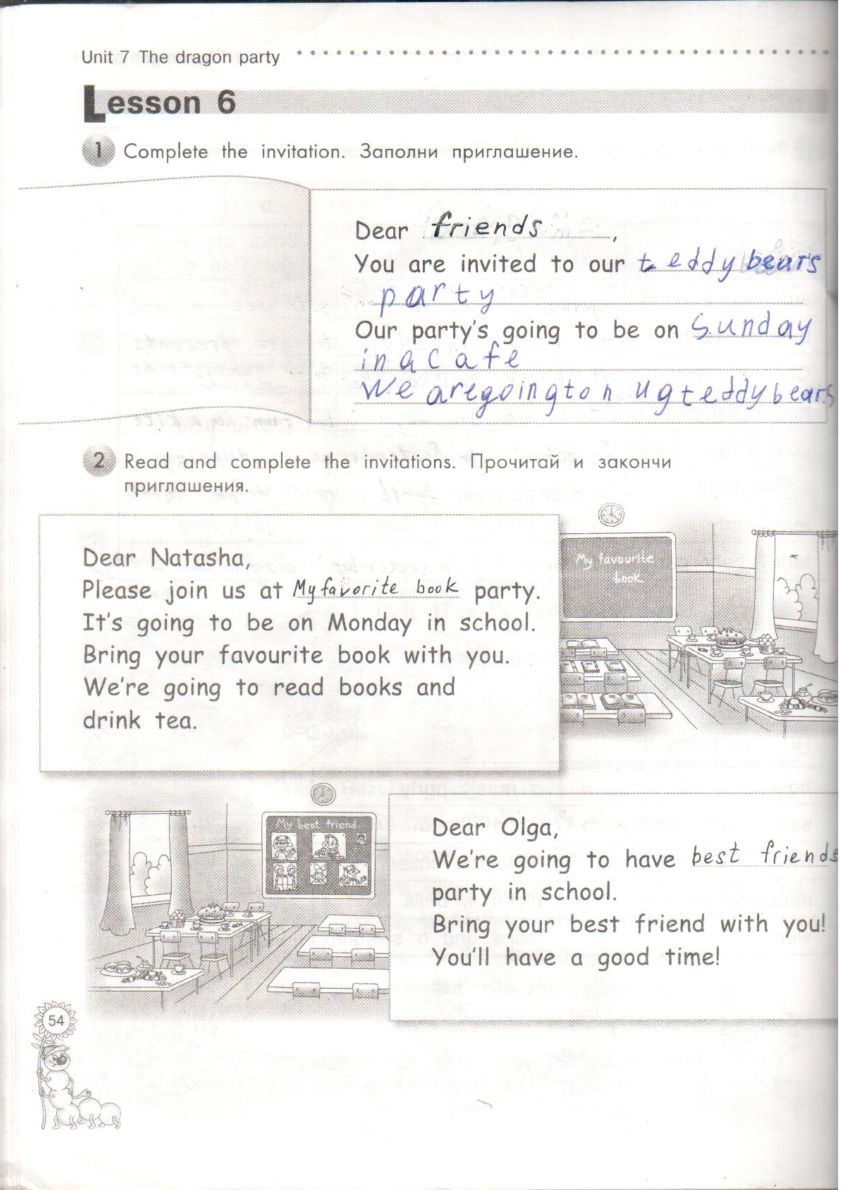 Unit 7 The dragon party
Lesson 6
1 Complete the invitation. Заполни приглашение.
Dear friends,
You are invited to our teddy bears
party
Our party's going to be on Sunday
in a cafe
We are going to hug teddy bears
2 Read and complete the invitations. Прочитай и закончи
приглашения.
Dear Natasha,
Please join us at My favorite book party.
It's going to be on Monday in school.
Bring your favourite book with you.
We're going to read books and
drink tea.
My favourite
book
My best friend
Dear Olga,
We're going to have best friends
party in school.
Bring your best friend with you!
You'll have a good time!
54